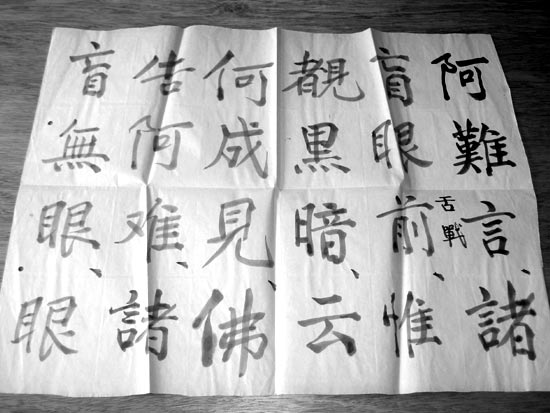 阿難言、諸
舌戰
盲眼前、惟
覩黑暗、云
何成見、佛
告阿难、諸
盲無眼、眼